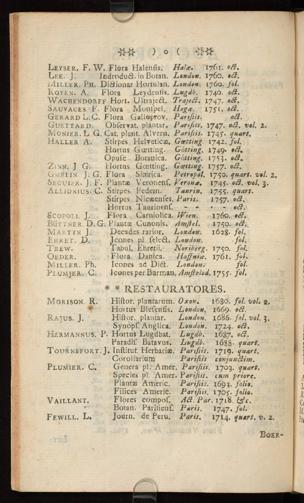 ) o (
LEYSER. F. W. Flora Halensis. Halæ. 1761. oct.
LEE. J. Indroduct. in Botan. London. 1760. oct.
MILLER. PH. Dictionar Hortulan. London. 1760. fol.
ROYEN. A. Flora Leydensis. Lugdb. 1740. oct.
WACHENDORFF Hort. Ultraject. Traject. 1747. oct.
SAUVAGES F. Flora Monspel. Hagæ. 1751. oct.
GERARD L.C. Flora Galloprov. Parisiis. oct.
GUETTARD. Observat. plantar. Parisiis. 1747. oct. vol. 2.
MONIER. L G Cat. plant. Alvern. Parisiis. 1745. quart.
HALLER A. Stirpes Helveticæ. Gœtting 1742. fol.
Hortus Gœtting. Götting. 1749. oct.
Opusc. Botanica. Götting. 1753. oct.
ZINN. J G. Hortus Gœtting. Gœtting 1757. oct.
GMELIN J G. Flora Sibirica. Petropol. 1750. quart. vol. 2.
SEGUIER. J F. Plantæ Veronens. Verona. 1745. oct. vol. 3.
ALLIONIUS. C. Stirpes Pedem. Taurin. 1755. quart.
Stirpes Nicæenses. Paris. 1757. oct.
Hortus Taurinens. - - - oct.
SCOPOLI J. Flora Carniolica. Wien. 1760. oct.
BÜTTNER D. G. Plantæ Cunonis. Amstel. 1750. oct.
MARTYN J. Decades rarior. London. 1628. fol.
EHRET. D. Icones pl. select. London. fol.
TREW. Tabul. Ehretii. Noriberg. 1750. fol.
OEDER. Flora Danica. Haffniæ. 1761. fol.
MILLER. Ph. Icones ad Dict. London. fol.
PLUMJER. C. Icones per Barman. Amstelod. 1755. fol.
* * RESTAURATORES.
MORISON. R. Histor. plantarum. Oxon. 1680. fol. vol. 2.
Hortus Blesensis. London. 1669. oct.
RAJUS. J. Histor. plantar. London. 1686. fol. vol. 3.
Synops. Anglica. London. 1724. oct.
HERMANNUS. P. Hortus Lugdbat. Lugdb. 1687. oct.
Paradis. Batavus. Lugdb. 1688. quart.
TOURNEFORT. J. Institut Herbariæ. Parisiis. 1719. quart.
Corollarium Parisiis conjunctim.
PLUMIER. C. Genera pl. Amer. Parisiis. 1703. quart.
Species pl. Amer. Parisiis. cum priore.
Plantæ Americ. Parisiis. 1693. folio.
Filices Americ. Parisiis. 1705. folio.
VAILLANT. Flores compos. Act. Par. 1718. &c.
Botan. Parisiens. Paris. 1747. fol.
FEWILL. L. Journ. de Peru. Paris. 1714. quart. v. 2.
BOER-